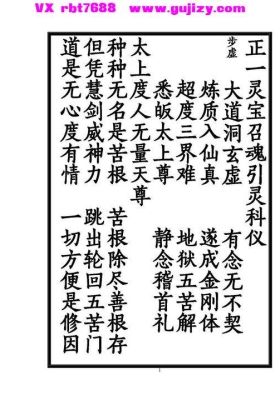 VX rbt7688 www.gujizy.com
正一灵宝召魂引灵科仪
步虚
大道洞玄虚 有念无不契
炼质入仙真 遂成金刚体
超度三界难 地狱五苦解
悉皈太上尊 静念稽首礼
太上度人无量天尊
种种无名是苦根 苦根除尽善根存
但凭慧剑威神力 跳出轮回五苦门
道是无心度有情 一切方便是修因